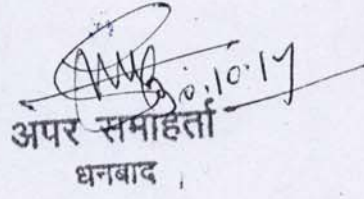 30.10.17
अपर समाहर्ता
धनबाद